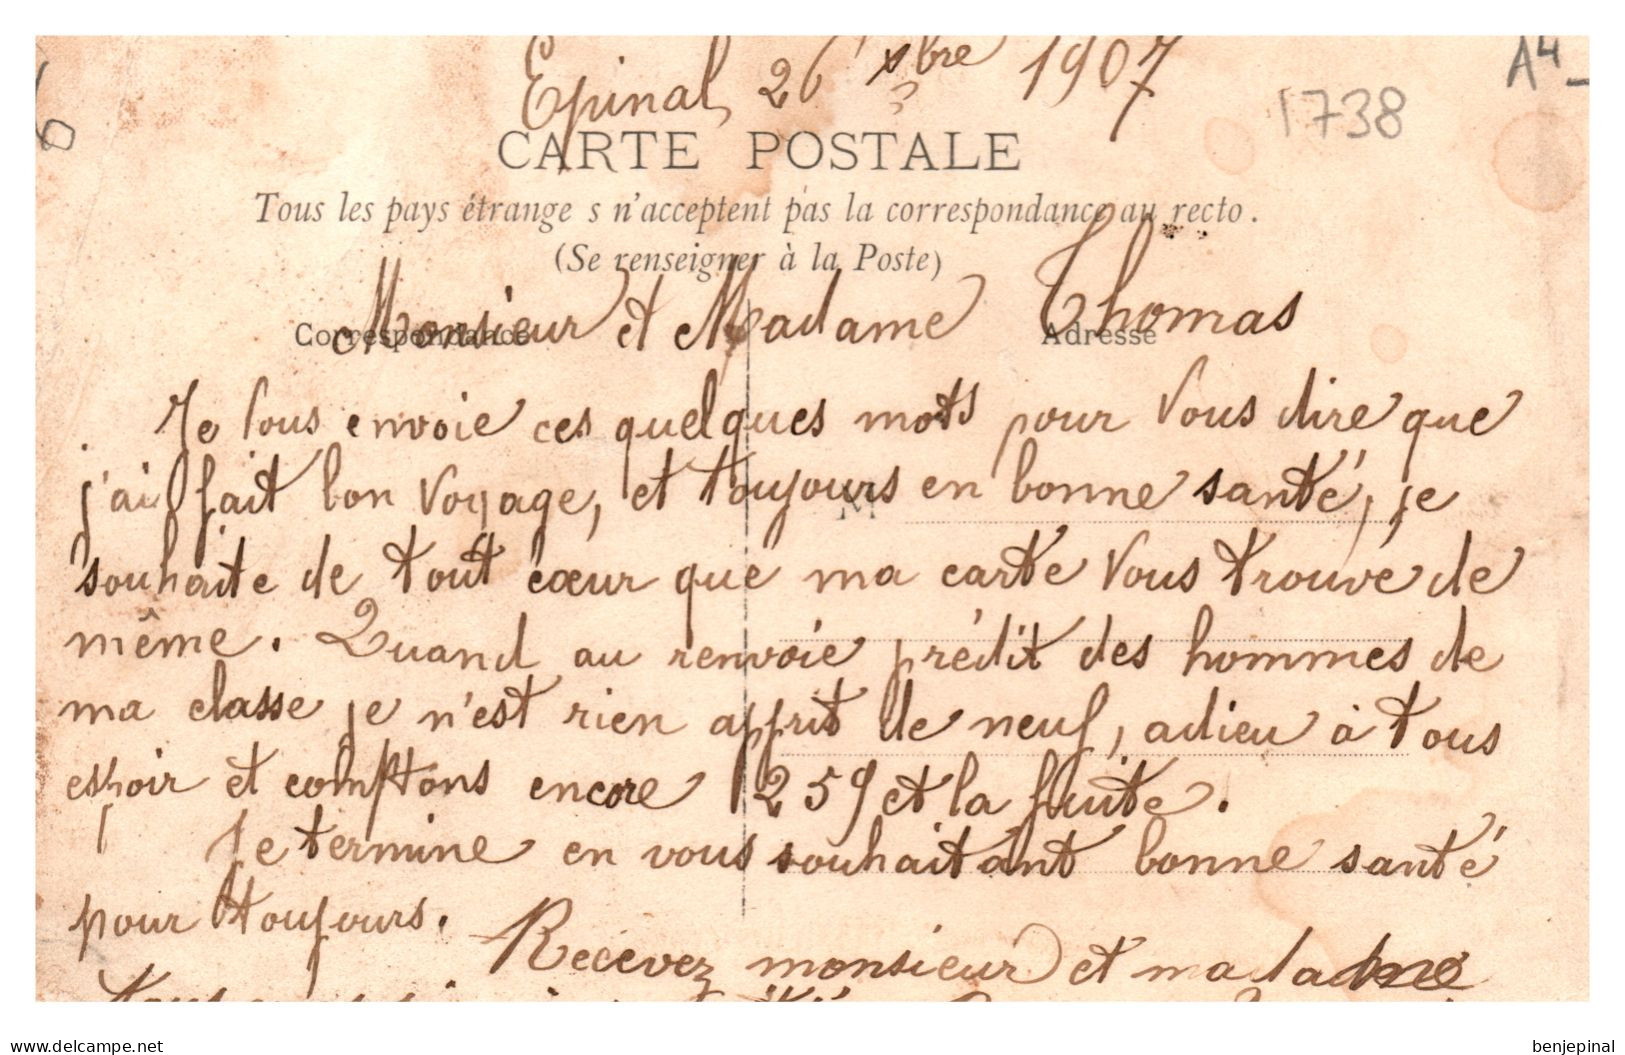 A4-
Epinal, 26 xbre 1907
1738
CARTE POSTALE
Tous les pays étrange s n'acceptent pas la correspondance au recto.
(Se renseigner à la Poste)
Monsieur et Madame Thomas
Correspondance
Adresse
Je vous envoie ces quelques mots pour vous dire que
j'ai fait bon voyage, et toujours en bonne santé, je
M
souhaite de tout cœur que ma carte vous trouve de
même. Quand au renvoie prédit des hommes de
ma classe je n'est rien apprit de neuf, adieu à tous
espoir et comptons encore 259 et la fuite.
Je termine en vous souhaitant bonne santé
pour toujours.
Recevez monsieur et madame
delcampe.net
benjepinal